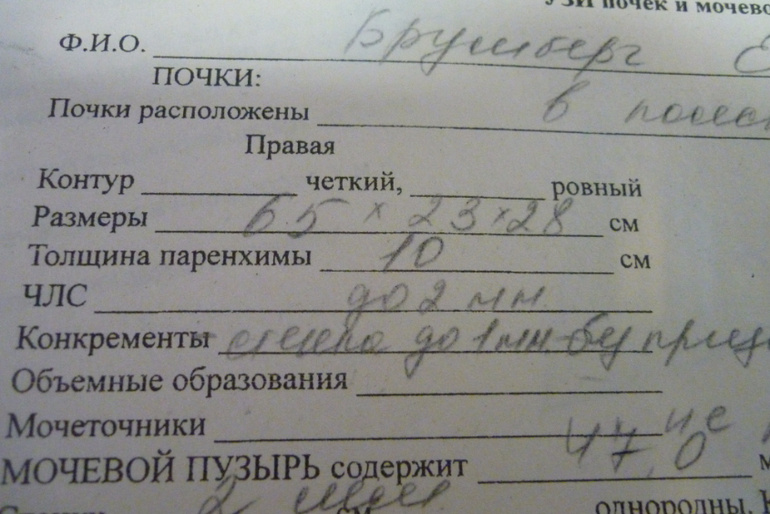 УЗИ почек и мочево
Ф.И.О. Брумберг Е
ПОЧКИ:
Почки расположены в
Правая
Контур четкий, ровный
Размеры 65 х 23 х 28 см
Толщина паренхимы 10 см
ЧЛС до 2 мм
Конкременты стенка до 1 мм
Объемные образования
Мочеточники не
МОЧЕВОЙ ПУЗЫРЬ содержит 47,0 м
2 мм см однородны.